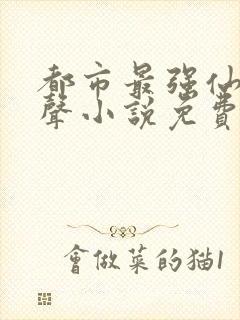 都市最强仙
聲小說免費
會做菜的猫1